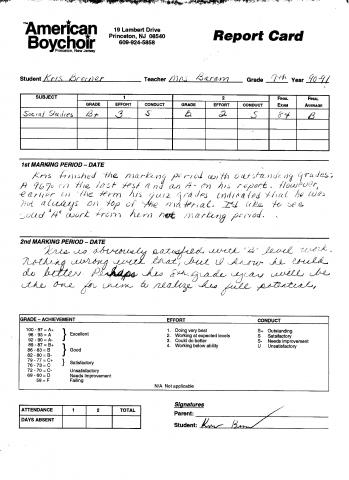 The American Boychoir
Princeton, New Jersey
19 Lambert Drive
Princeton, NJ 08540
609-924-5858
Report Card
Student Kris Breiner Teacher Mrs Baram Grade 7th Year 90-91
SUBJECT 1 2 FINAL EXAM FINAL AVERAGE
GRADE EFFORT CONDUCT GRADE EFFORT CONDUCT
Social Studies B+ 3 S B 2 S 84 B
1st MARKING PERIOD - DATE
Kris finished the marking period with outstanding grades:
A 96% in the last test and an A- on his report. However,
earlier in the term his quiz grades indicated that he was
not always on top of the material. I'd like to see
solid "A" work from him next marking period.
2nd MARKING PERIOD - DATE
Kris is obviously satisfied with B level work.
Nothing wrong with that, but I know he could
do better. Perhaps his 8th grade year will be
the one for him to realize his full potential.
GRADE - ACHIEVEMENT EFFORT CONDUCT
100 - 97 = A+ 1. Doing very best O+ Outstanding
96 - 93 = A Excellent 2. Working at expected levels S Satisfactory
92 - 90 = A- 3. Could do better S- Needs Improvement
89 - 87 = B+ 4. Working below ability U Unsatisfactory
86 - 83 = B Good
82 - 80 = B-
79 - 77 = C+ Satisfactory
76 - 73 = C
72 - 70 = C- Unsatisfactory
69 - 60 = D Needs Improvement
59 = F Failing
N/A Not applicable
ATTENDANCE 1 2 TOTAL
DAYS ABSENT
Signatures
Parent:
Student: